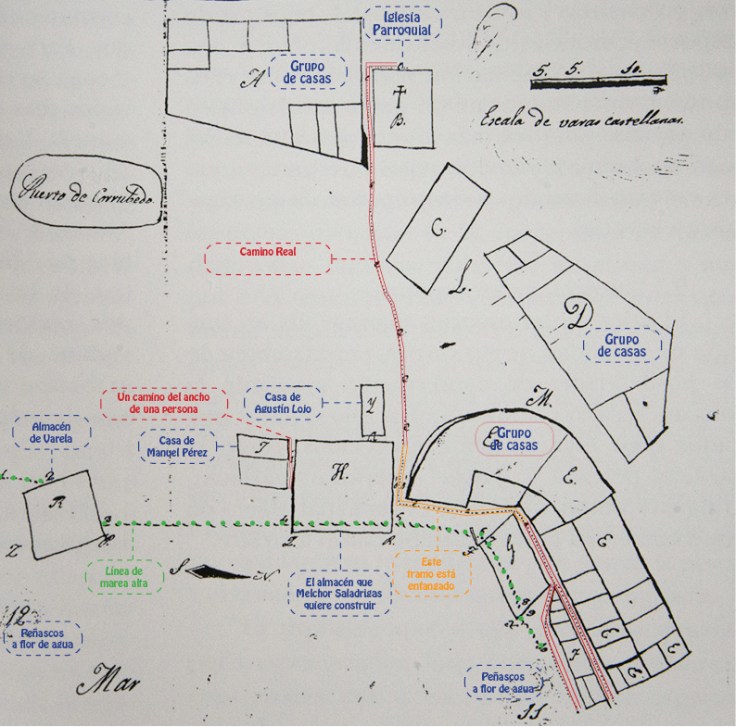 Iglesia
Parroquial
Grupo
de casas
A
B.
5. 5. 10.
Escala de varas castellanas.
Puerto de Corrubedo
C.
Camino Real
L.
D
Grupo
de casas
Un camino del ancho
de una persona
Casa de
Agustín Lojo
Y
M.
Almacén
de Varela
Casa de
Manuel Pérez
Grupo
de casas
E
H.
R
E
Z
S
N
G
Línea de
marea alta
El almacén que
Melchor Saladrigas
quiere construir
Este
tramo está
enfangado
E
E
E
E
12
Peñascos
a flor de agua
Mar
Peñascos
a flor de agua
11